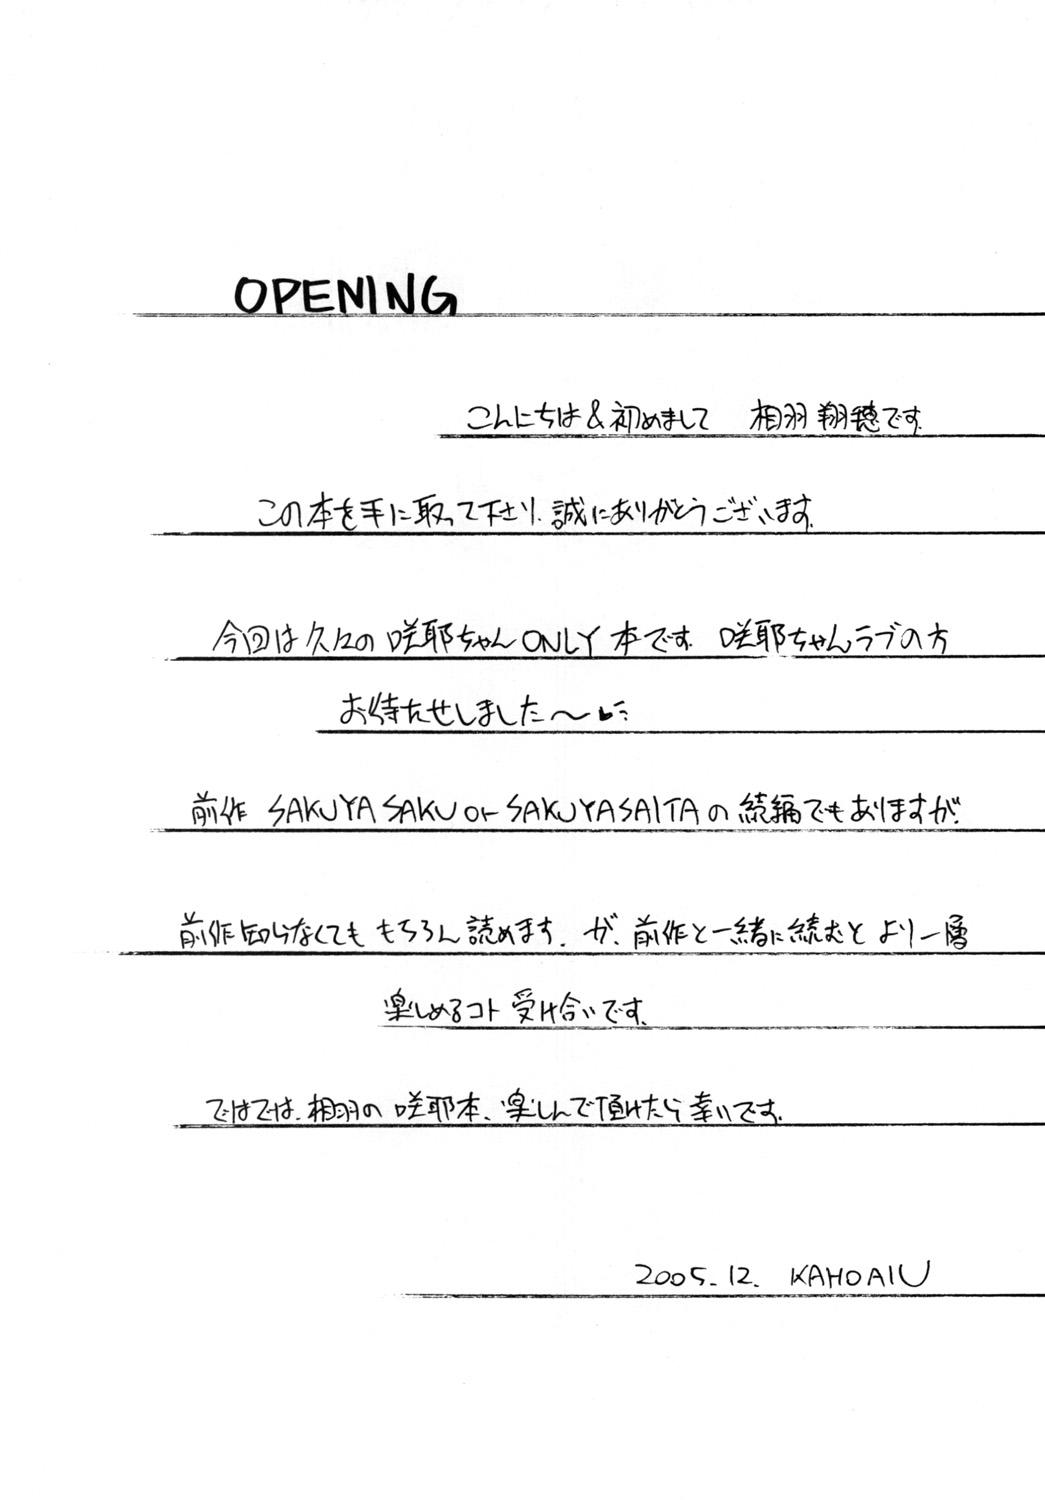 OPENING
こんにちは&初めまして 相羽 翔穂です.
この本を手に取って下さり.誠にありがとうございます.
今回は久々の咲耶ちゃんONLY本です.咲耶ちゃんラブの方
お待たせしました〜
前作 SAKUYA SAKU or SAKUYASAITAの続編でもありますが.
前作知らなくても もちろん読めます.が、前作と一緒に続むと より一層
楽しめるコト 受け合いです.
ではでは.相羽の 咲耶本、楽しんで頂けたら幸いです.
2005.12. KAHOAIU